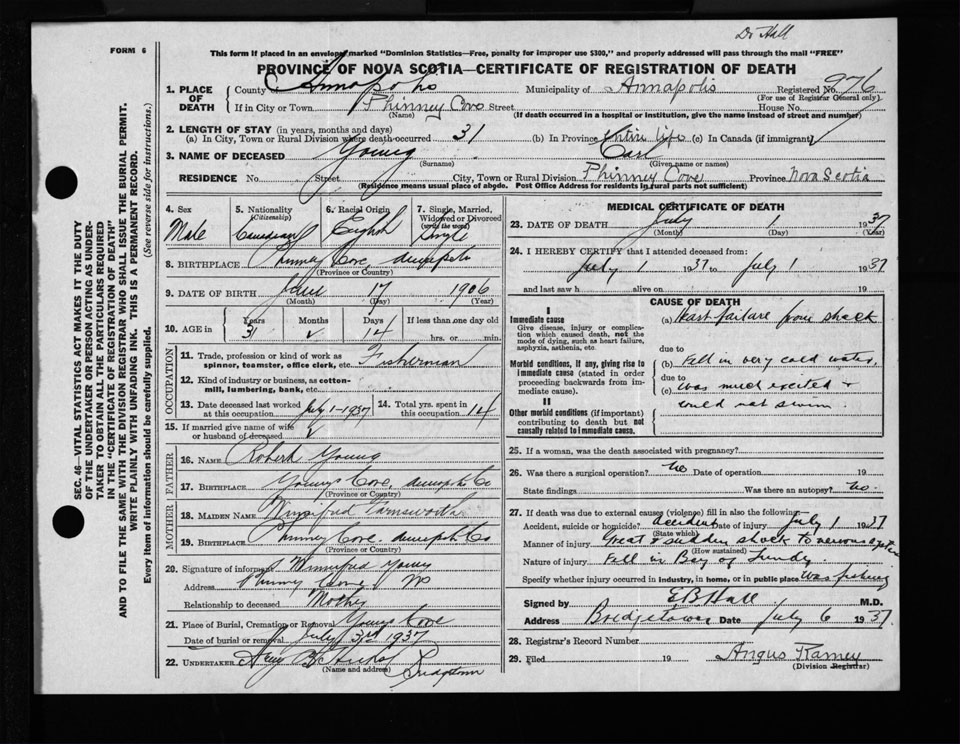 Dr Hall
FORM 6
This form if placed in an envelope marked "Dominion Statistics—Free, penalty for improper use $300," and properly addressed will pass through the mail "FREE"
PROVINCE OF NOVA SCOTIA—CERTIFICATE OF REGISTRATION OF DEATH
1. PLACE OF DEATH
County Annapolis Municipality of Annapolis Registered No. 976
(For use of Registrar General only)
If in City or Town Phinney Cove Street House No.
(Name) (If death occurred in a hospital or institution, give the name instead of street and number)
2. LENGTH OF STAY (in years, months and days)
(a) In City, Town or Rural Division where death occurred 31 (b) In Province Entire life (c) In Canada (if immigrant)
3. NAME OF DECEASED Young Carl
(Surname) (Given name or names)
RESIDENCE No. Street City, Town or Rural Division Phinney Cove Province Nova Scotia
(Residence means usual place of abode. Post Office Address for residents in rural parts not sufficient)
4. Sex
Male
5. Nationality
(Citizenship)
Canadian
6. Racial Origin
English
7. Single, Married, Widowed or Divorced
(write the word)
Single
8. BIRTHPLACE Phinney Cove, Annapolis
(Province or Country)
9. DATE OF BIRTH 17 1906
(Month) (Day) (Year)
10. AGE in Years Months Days If less than one day old
31 14 hrs. or min.
OCCUPATION
11. Trade, profession or kind of work as spinner, teamster, office clerk, etc. Fisherman
12. Kind of industry or business, as cotton-mill, lumbering, bank, etc.
13. Date deceased last worked at this occupation July 1-1937
14. Total yrs. spent in this occupation 14
15. If married give name of wife or husband of deceased
FATHER
16. NAME Robert Young
17. BIRTHPLACE Youngs Cove, Annapolis Co
(Province or Country)
MOTHER
18. MAIDEN NAME Winnifred Farnsworth
19. BIRTHPLACE Phinney Cove. Annapolis Co
(Province or Country)
20. Signature of informant Winnifred Young
Address Phinney Cove NS
Relationship to deceased Mother
21. Place of Burial, Cremation or Removal Youngs Cove
Date of burial or removal July 3rd 1937
22. UNDERTAKER Bridgetown
(Name and address)
MEDICAL CERTIFICATE OF DEATH
23. DATE OF DEATH July 1 1937
(Month) (Day) (Year)
24. I HEREBY CERTIFY that I attended deceased from:
July 1 1937 to July 1 1937
and last saw h alive on 19
CAUSE OF DEATH
I
Immediate cause
Give disease, injury or complication which caused death, not the mode of dying, such as heart failure, asphyxia, asthenia, etc.
(a) Heart failure from shock
due to
Morbid conditions, if any, giving rise to immediate cause (stated in order proceeding backwards from immediate cause).
(b) Fell in very cold water,
due to
(c) was much excited &
could not swim.
II
Other morbid conditions (if important) contributing to death but not causally related to immediate cause.
25. If a woman, was the death associated with pregnancy?
26. Was there a surgical operation? No Date of operation 19
State findings Was there an autopsy? No.
27. If death was due to external causes (violence) fill in also the following:
Accident, suicide or homicide? accident Date of injury July 1 1937
(State which)
Manner of injury Great & sudden shock to nervous system
(How sustained)
Nature of injury Fell in Bay of Fundy
Specify whether injury occurred in industry, in home, or in public place Was fishing
Signed by E B Hall M.D.
Address Bridgetown Date July 6 1937.
28. Registrar's Record Number
29. Filed 19 Angus Ramey
(Division Registrar)
SEC. 46—VITAL STATISTICS ACT MAKES IT THE DUTY
OF THE UNDERTAKER OR PERSON ACTING AS UNDERTAKER TO OBTAIN ALL THE PARTICULARS REQUIRED
IN THE "CERTIFICATE OF REGISTRATION OF DEATH"
AND TO FILE THE SAME WITH THE DIVISION REGISTRAR WHO SHALL ISSUE THE BURIAL PERMIT.
WRITE PLAINLY WITH UNFADING INK. THIS IS A PERMANENT RECORD.
Every item of information should be carefully supplied. (See reverse side for instructions.)